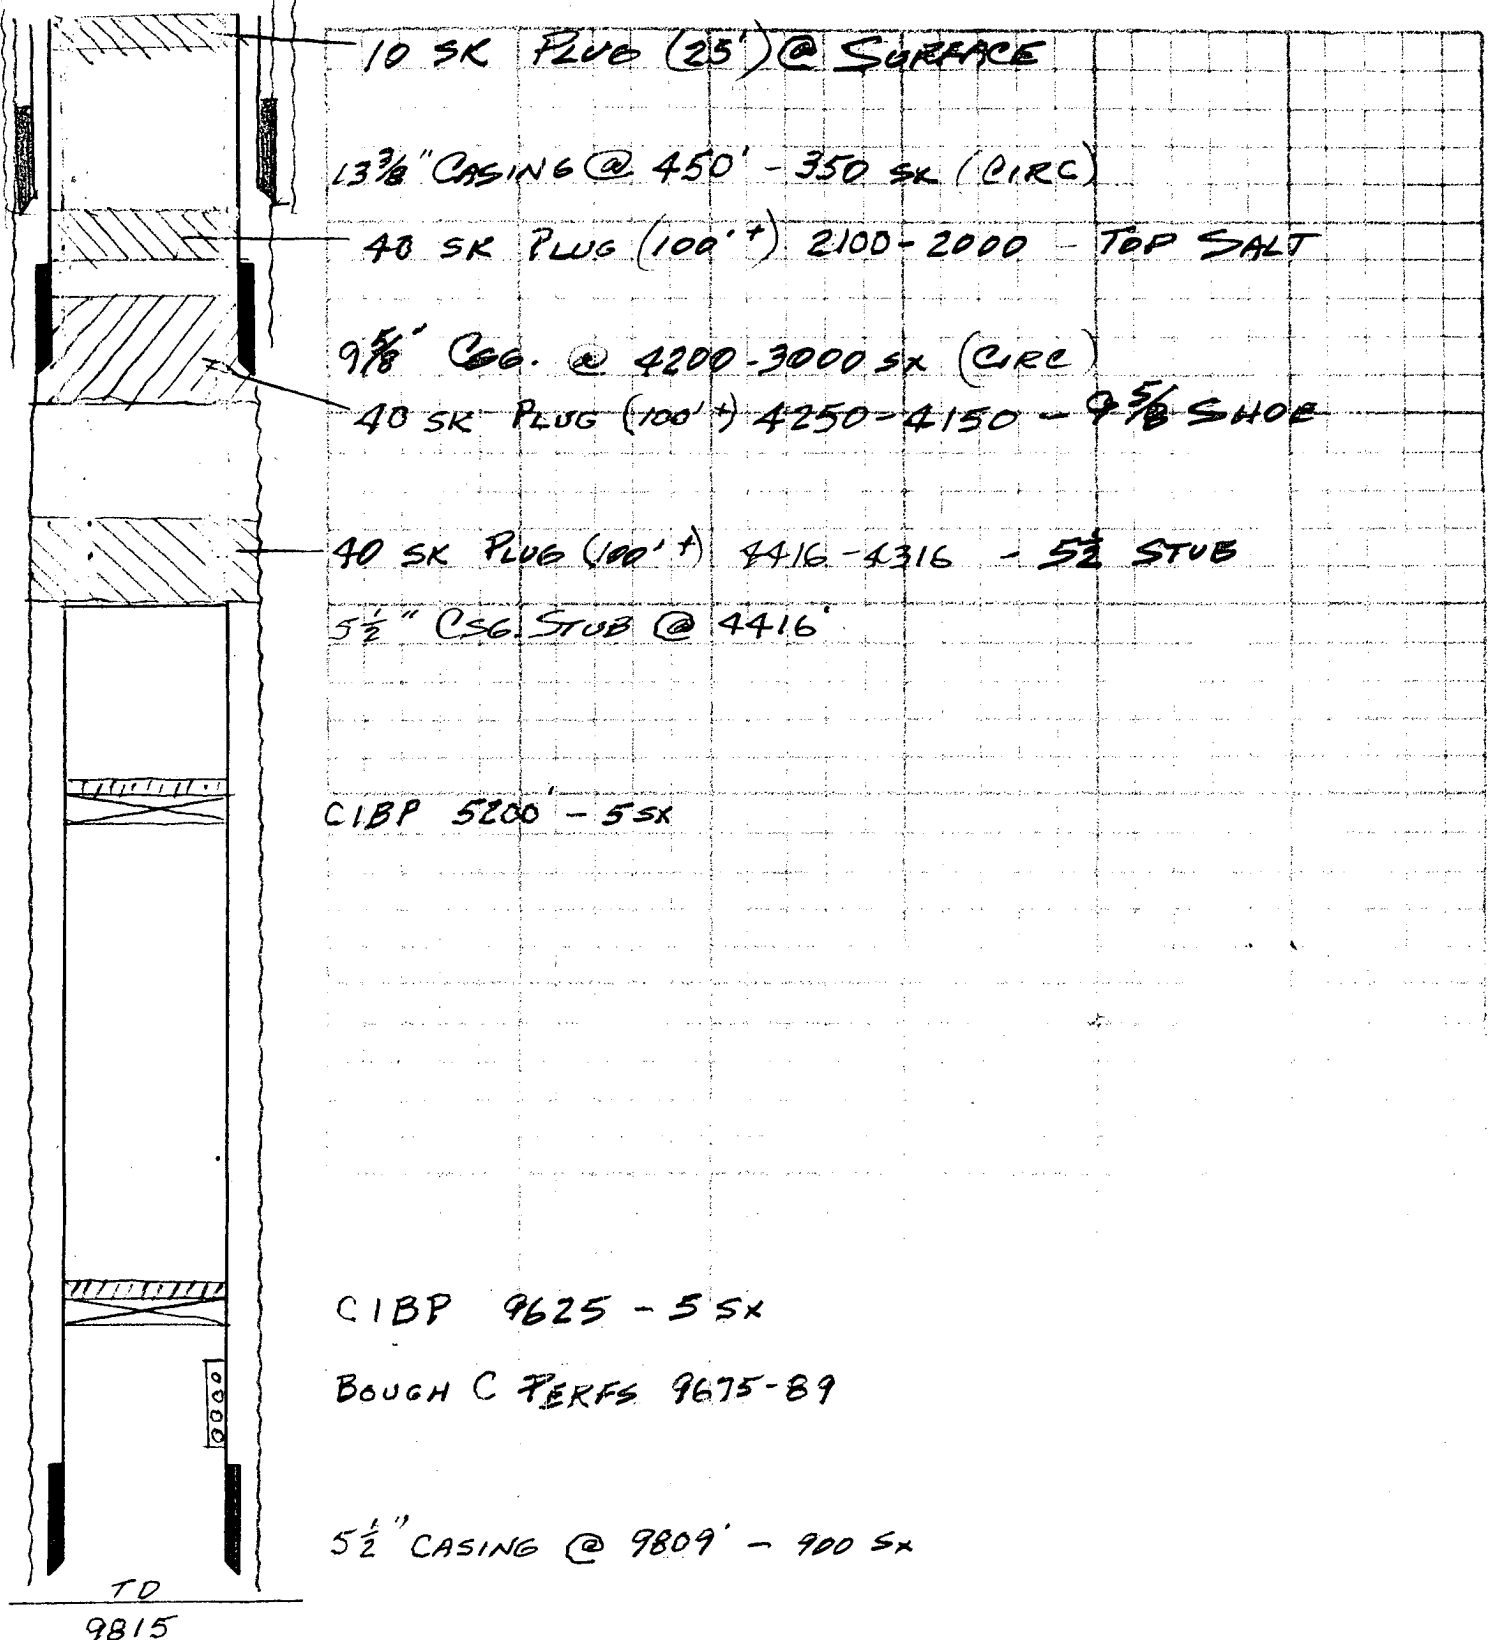 10 SK PLUG (25') @ SURFACE
13 3/8" CASING @ 450' - 350 SX (CIRC)
40 SK PLUG (100' +) 2100-2000 - TOP SALT
9 5/8" CSG. @ 4200-3000 SX (CIRC)
40 SK PLUG (100' +) 4250-4150 - 9 5/8 SHOE
40 SK PLUG (100' +) 4416-4316 - 5 1/2 STUB
5 1/2" CSG. STUB @ 4416'
CIBP 5200' - 5 SX
CIBP 9625 - 5 SX
BOUGH C PERFS 9675-89
5 1/2" CASING @ 9809' - 900 SX
TD
9815